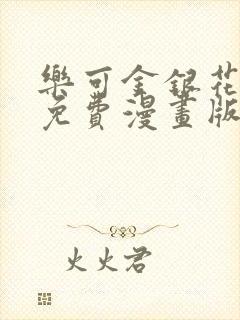 樂可金銀花
免費漫畫版
火火君